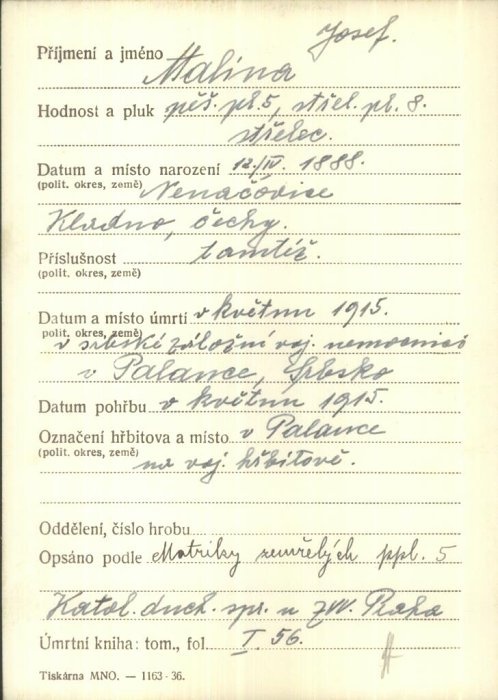 Josef.
Příjmení a jméno Malina
Hodnost a pluk pěš. pl. 5, střel. pl. 8.
střelec.
Datum a místo narození 12./IV. 1888.
(polit. okres, země) Nenačovice
Kladno, Čechy.
Příslušnost tamtéž.
(polit. okres, země)
Datum a místo úmrtí v květnu 1915.
(polit. okres, země) v srbské záložní voj. nemocnici
v Palance, Srbsko
Datum pohřbu v květnu 1915.
Označení hřbitova a místo v Palance
(polit. okres, země) na voj. hřbitově.
Oddělení, číslo hrobu
Opsáno podle Matriky zemřelých ppl. 5
Katol. duch. spr. u ZVV. Praha
Úmrtní kniha: tom., fol. I. 56.
Tiskárna MNO. — 1163-36.